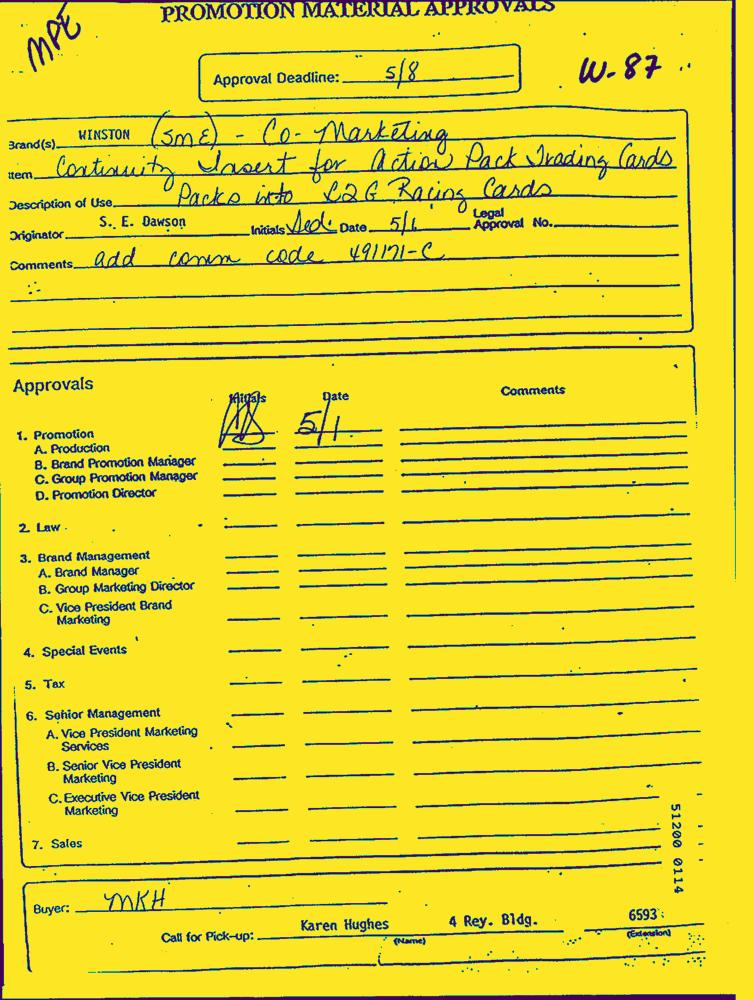 PROMOTION MATERIAL APPROVALS
MPE
Approval Deadline: 5/8
W-87
Brand(s) WINSTON (SME) - Co-Marketing
Item Continuity Insert for Action Pack Trading Cards
Description of Use Packs into L2G Racing Cards
Originator S. E. Dawson Initials Sed. Date 5/1 Legal Approval No.
Comments add comm code 491171-C
Approvals
Initials Date Comments
1. Promotion 5/1
A. Production
B. Brand Promotion Manager
C. Group Promotion Manager
D. Promotion Director
2. Law
3. Brand Management
A. Brand Manager
B. Group Marketing Director
C. Vice President Brand
Marketing
4. Special Events
5. Tax
6. Senior Management
A. Vice President Marketing
Services
B. Senior Vice President
Marketing
C. Executive Vice President
Marketing
7. Sales
51200 0114
Buyer: MKH
Call for Pick-up: Karen Hughes 4 Rey. Bldg. 6593
(Name) (Extension)